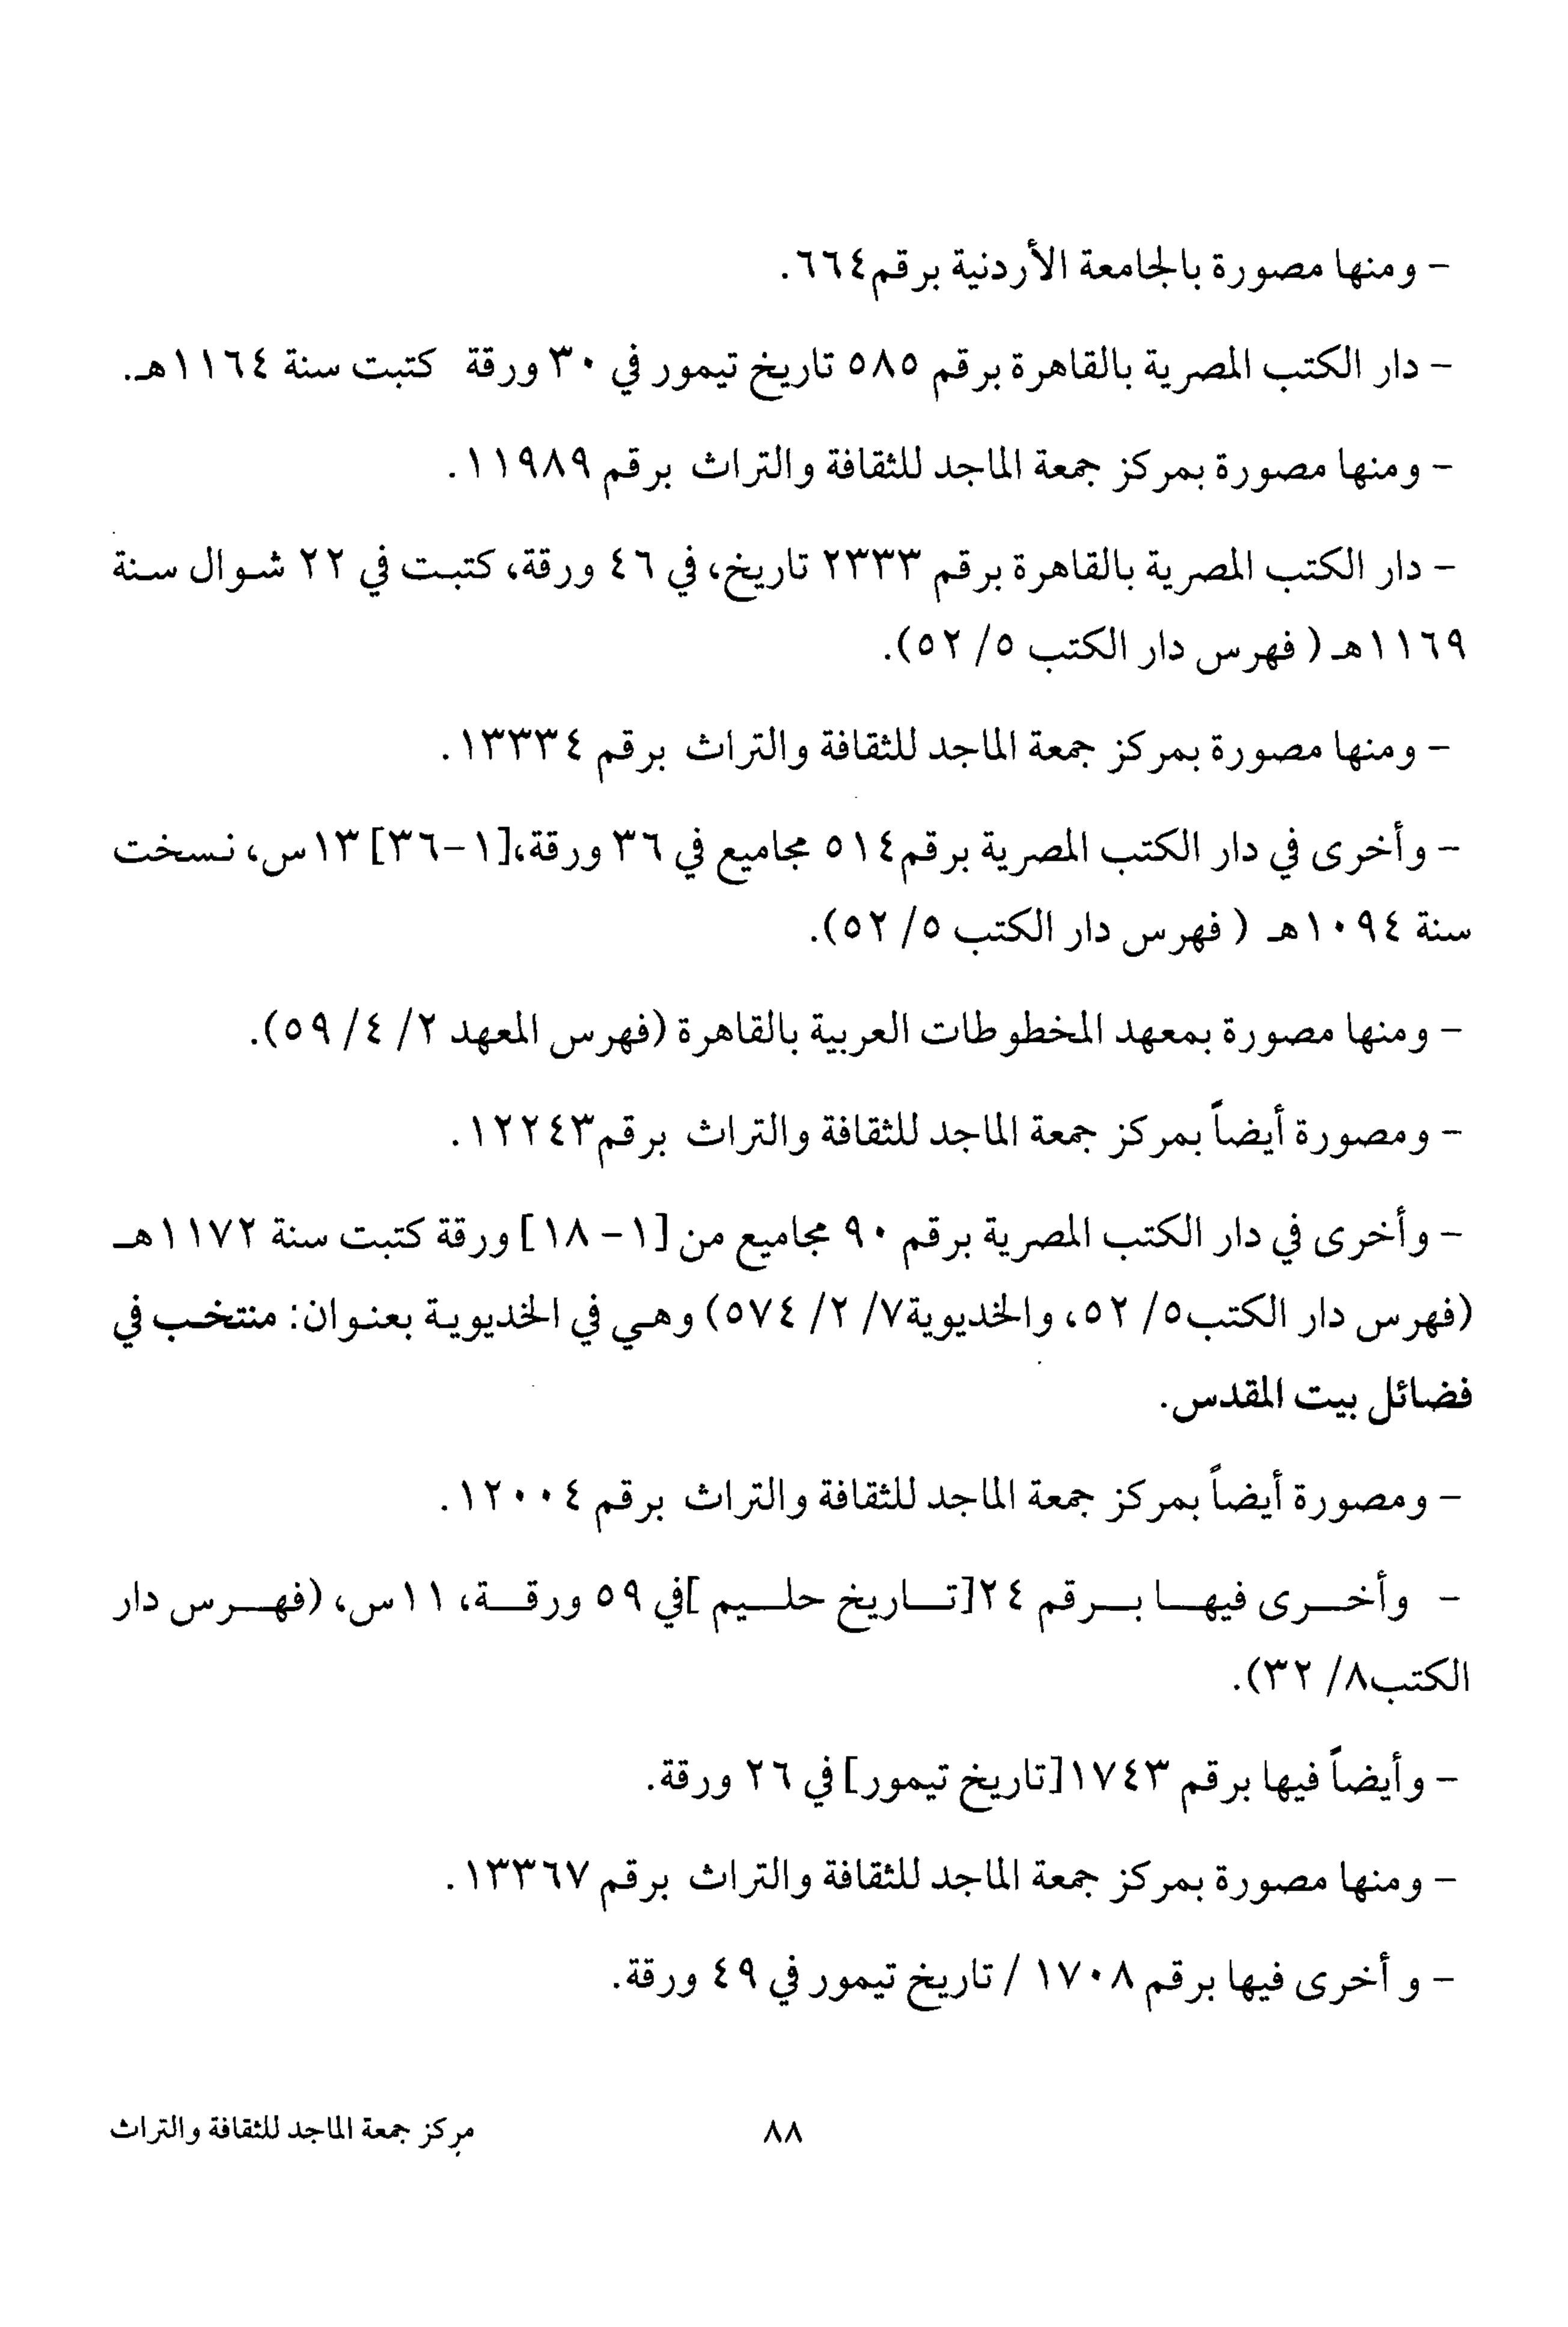 - ومنها مصورة بالجامعة الأردنية برقم٦٦٤.
- دار الكتب المصرية بالقاهرة برقم ٥٨٥ تاريخ تيمور في ٣٠ ورقة كتبت سنة ١١٦٤هـ.
- ومنها مصورة بمركز جمعة الماجد للثقافة والتراث برقم ١١٩٨٩.
- دار الكتب المصرية بالقاهرة برقم ٢٣٣٣ تاريخ، في ٤٦ ورقة، كتبت في ٢٢ شوال سنة
١١٦٩هـ ( فهرس دار الكتب ٥/ ٥٢).
- ومنها مصورة بمركز جمعة الماجد للثقافة والتراث برقم ١٣٣٣٤.
- وأخرى في دار الكتب المصرية برقم٥١٤ مجاميع في ٣٦ ورقة،[١-٣٦] ١٣س، نسخت
سنة ١٠٩٤هـ ( فهرس دار الكتب ٥/ ٥٢).
- ومنها مصورة بمعهد المخطوطات العربية بالقاهرة (فهرس المعهد ٢/ ٤/ ٥٩).
- ومصورة أيضاً بمركز جمعة الماجد للثقافة والتراث برقم١٢٢٤٣.
- وأخرى في دار الكتب المصرية برقم ٩٠ مجاميع من [١- ١٨] ورقة كتبت سنة ١١٧٢هـ
(فهرس دار الكتب٥/ ٥٢، والخديوية٧/ ٢/ ٥٧٤) وهي في الخديوية بعنوان: منتخب في
فضائل بيت المقدس.
- ومصورة أيضاً بمركز جمعة الماجد للثقافة والتراث برقم ١٢٠٠٤.
- وأخرى فيها برقم ٢٤[تاريخ حليم ]في ٥٩ ورقة، ١١س، (فهرس دار
الكتب٨/ ٣٢).
- وأيضاً فيها برقم ١٧٤٣[تاريخ تيمور] في ٢٦ ورقة.
- ومنها مصورة بمركز جمعة الماجد للثقافة والتراث برقم ١٣٣٦٧.
- و أخرى فيها برقم ١٧٠٨ / تاريخ تيمور في ٤٩ ورقة.
٨٨
مركز جمعة الماجد للثقافة والتراث